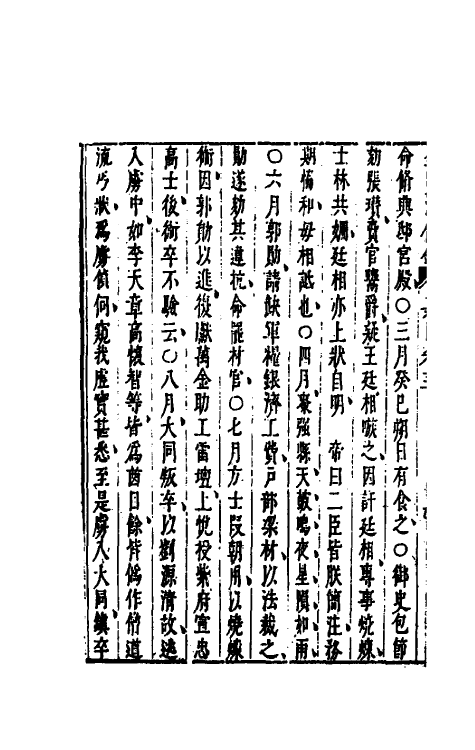 命脩興邸宮殿○三月癸巳朔日有食之○御史包節
劾張瓚賣官鬻爵疑王廷相嗾之因訐廷相專事燒煉
士林共嫺廷相亦上狀自明　帝曰二臣皆朕簡注務
期脩和毋相詆也○四月棗強縣天鼓鳴夜星隕如雨
○六月郭勛請缺軍糧銀濟工費戶部梁材以法裁之
勛遂劾其違抗命罷材官○七月方士段朝用以燒煉
術因郭勛以進復獻萬金助工雷壇上悅授紫府宣忠
高士後術卒不驗云○八月大同叛卒以劉源清故逃
入虜中如李天章高懷智等皆為酋目餘皆偽作僧道
流丐狀為虜偵伺窺我虛實甚悉至是虜入大同鎮卒